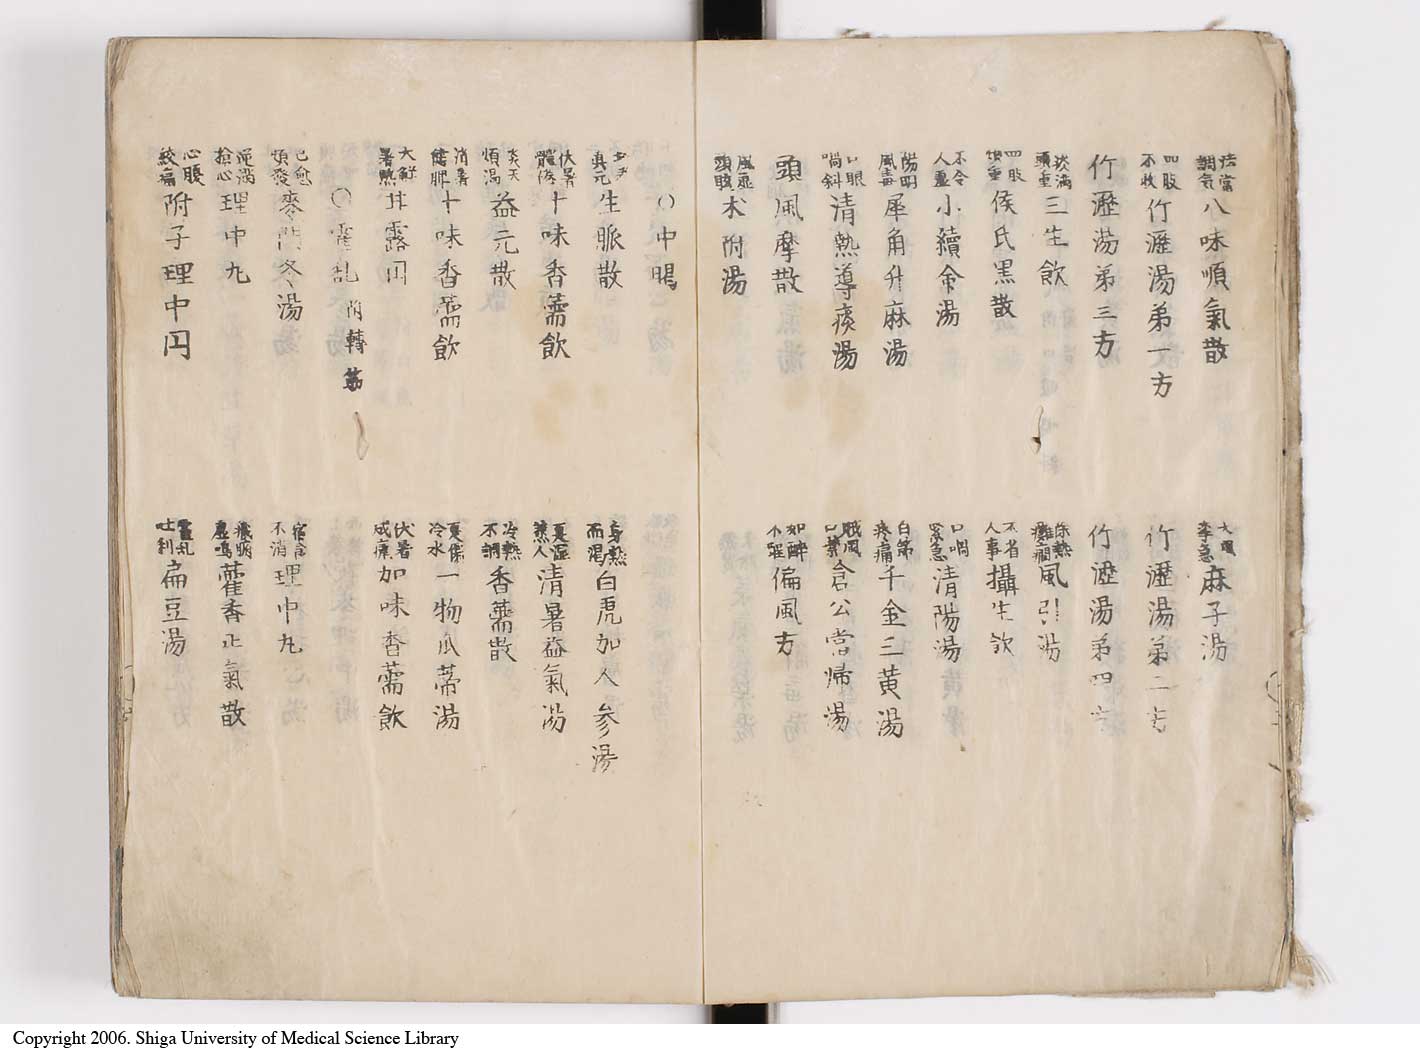 法當調気 八味順氣散
四肢不收 竹瀝湯弟一方
竹瀝湯弟三方
痰満頭重 三生飲
四肢煩重 侯氏黒散
不令人虚 小續命湯
陽明風毒 犀角升麻湯
口眼喎斜 清熱導痰湯
頭風摩散
風虚頭眩 术附湯
大風引急 麻子湯
竹瀝湯弟二方
竹瀝湯弟四方
除熱癱癇 風引湯
不省人事 攝生飲
口喎緊急 清陽湯
百節疼痛 千金三黄湯
賊風口禁 倉公當帰湯
如酔不醒 偏風方
○中暍
真元 生脉散
伏暑體倦 十味香薷飲
炎天煩渇 益元散
消暑健脾 十味香薷飲
大解暑熱 甘露円
○霍乱 附轉筋
已愈煩發 麥門冬湯
逆満搶心 理中丸
心腹絞痛 附子理中円
身熱而渇 白虎加人参湯
夏湿蒸人 清暑益氣湯
冷熱不調 香薷散
夏傷冷水 一物瓜蒂湯
伏暑成瘧 加味香薷飲
宿食不消 理中丸
虚鳴 藿香正氣散
霍乱吐利 扁豆湯
Copyright 2006. Shiga University of Medical Science Library